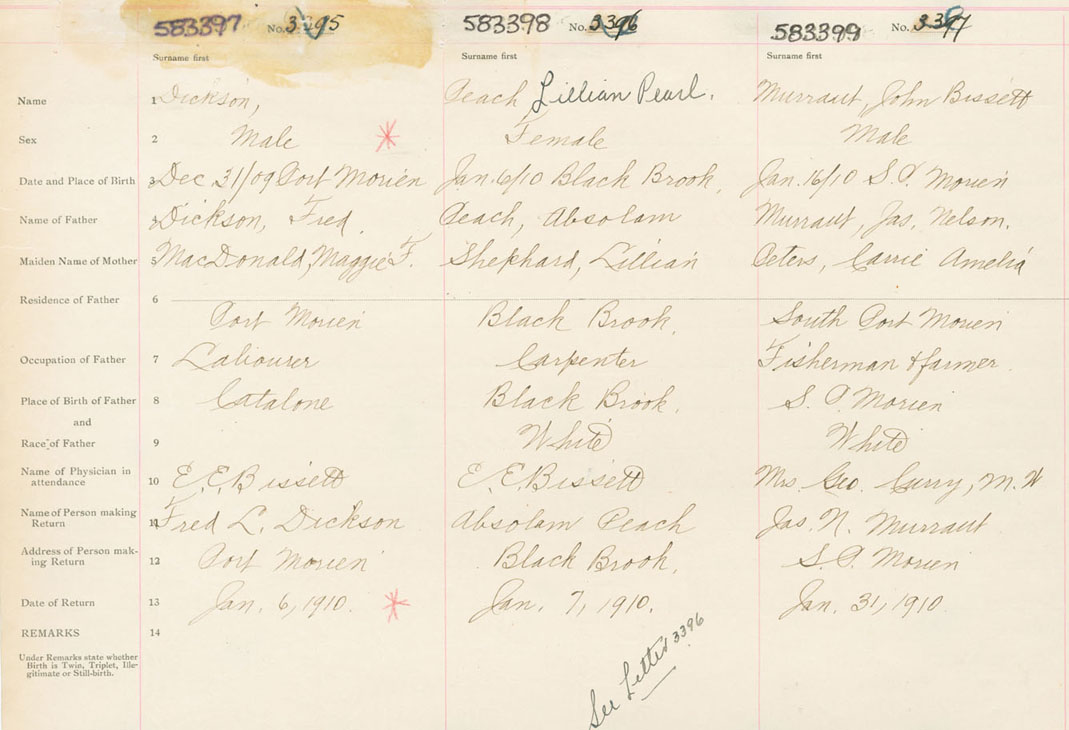 583397 No. 3395 583398 No. 3396 583399 No. 3397
Surname first Surname first Surname first
Name 1 Dickson, Peach Lillian Pearl. Murraut, John Bissett
Sex 2 Male Female Male
Date and Place of Birth 3 Dec 31/09 Port Morien Jan. 6/10 Black Brook, Jan. 16/10 S. P. Morien
Name of Father 4 Dickson, Fred. Peach, Absolam Murraut, Jas. Nelson.
Maiden Name of Mother 5 MacDonald, Maggie F. Shephard, Lillian Peters, Carrie Amelia
Residence of Father 6
Port Morien Black Brook, South Port Morien
Occupation of Father 7 Labourer Carpenter Fisherman & farmer.
Place of Birth of Father 8 Catalone Black Brook, S. P. Morien
and
Race of Father 9 White White
Name of Physician in
attendance 10 E. E. Bissett E. E. Bissett Mrs. Geo. Curry, M. W
Name of Person making
Return 11 Fred L. Dickson Absolam Peach Jas. N. Murraut
Address of Person mak-
ing Return 12 Port Morien Black Brook, S. P. Morien
Date of Return 13 Jan. 6, 1910. Jan. 7, 1910. Jan. 31, 1910.
REMARKS 14
Under Remarks state whether
Birth is Twin, Triplet, Ille-
gitimate or Still-birth.
See Letter 3396